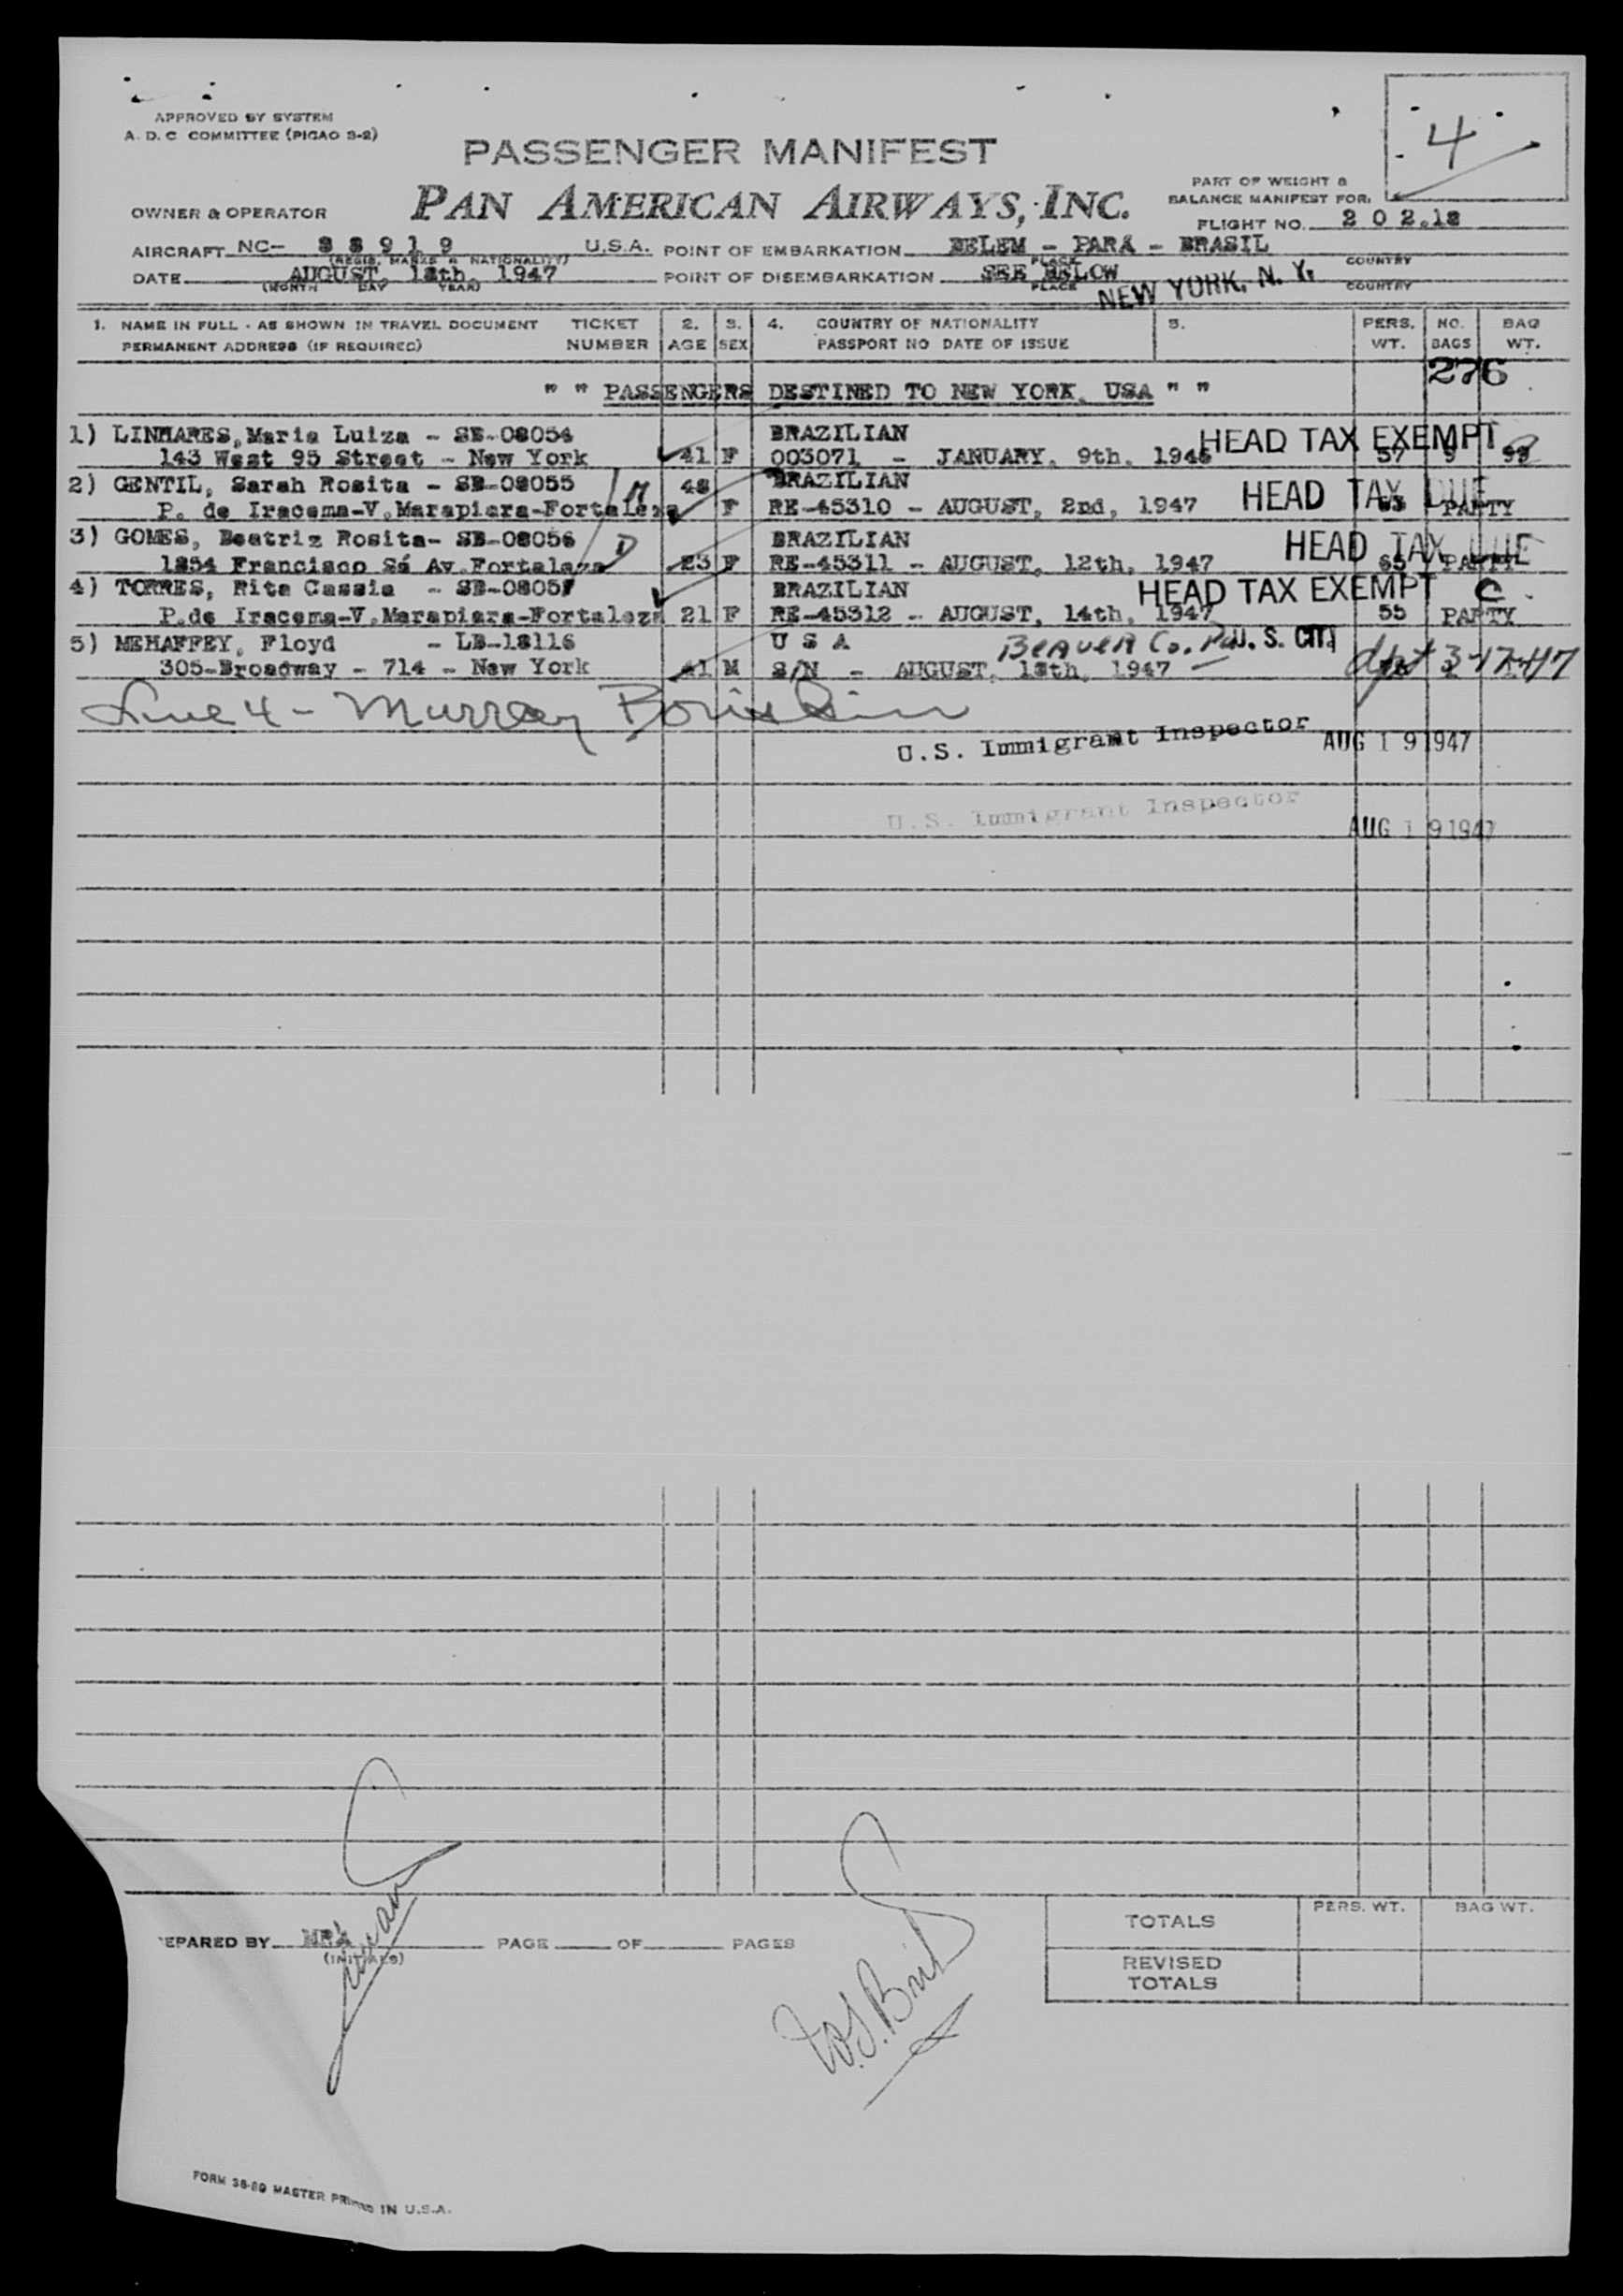 APPROVED BY SYSTEM
A. D. C COMMITTEE (PICAO 3-2)
4
PASSENGER MANIFEST
PAN AMERICAN AIRWAYS, INC.
PART OF WEIGHT &
BALANCE MANIFEST FOR:
OWNER & OPERATOR
FLIGHT NO. 202.18
AIRCRAFT NC- 88919 U.S.A. POINT OF EMBARKATION BELEM - PARÁ - BRASIL
(REGIS. MARKS & NATIONALITY) PLACE COUNTRY
DATE AUGUST, 18th, 1947 POINT OF DISEMBARKATION SEE BELOW
(MONTH DAY YEAR) PLACE NEW YORK, N. Y. COUNTRY
1. NAME IN FULL - AS SHOWN IN TRAVEL DOCUMENT TICKET 2. 3. 4. COUNTRY OF NATIONALITY 5. PERS. NO. BAG
PERMANENT ADDRESS (IF REQUIRED) NUMBER AGE SEX PASSPORT NO DATE OF ISSUE WT. BAGS WT.
276
" " PASSENGERS DESTINED TO NEW YORK, USA " "
1) LINHARES, Maria Luiza - SB-08054 BRAZILIAN HEAD TAX EXEMPT
143 West 95 Street - New York 41 F 003071 - JANUARY, 9th, 1946 57 9
2) GENTIL, Sarah Rosita - SB-08055 M 48 BRAZILIAN HEAD TAX DUE
P. de Iracema-V.Marapiara-Fortaleza F RE-45310 - AUGUST, 2nd, 1947 PARTY
3) GOMES, Beatriz Rosita- SB-08056 D BRAZILIAN HEAD TAX DUE
1854 Francisco Sá Av.Fortaleza 23 F RE-45311 - AUGUST, 12th, 1947 65 PARTY
4) TORRES, Rita Cassia - SB-08057 BRAZILIAN HEAD TAX EXEMPT C
P.de Iracema-V.Marapiara-Fortaleza 21 F RE-45312 - AUGUST, 14th, 1947 55 PARTY
5) MEHAFFEY, Floyd - LB-18116 U S A Beaver Co. Pa U. S. CIT.
305-Broadway - 714 - New York 41 M S/N - AUGUST, 18th, 1947 dpt 3-17-47
Line 4 - Murray
U.S. Immigrant Inspector AUG 19 1947
U.S. Immigrant Inspector AUG 19 1947
TOTALS PERS. WT. BAG WT.
EPARED BY PAGE OF PAGES
(INITIALS)
REVISED
TOTALS
FORM 36-80 MASTER PRINTED IN U.S.A.